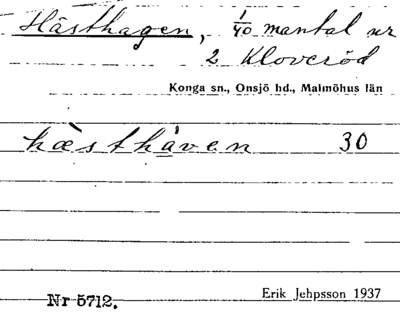 Hästhagen, 1/40 mantal nr
2 Kloveröd
Konga sn., Onsjö hd., Malmöhus län
hæ̀sthá̱ven 30
Nr 5712.
Erik Jehpsson 1937